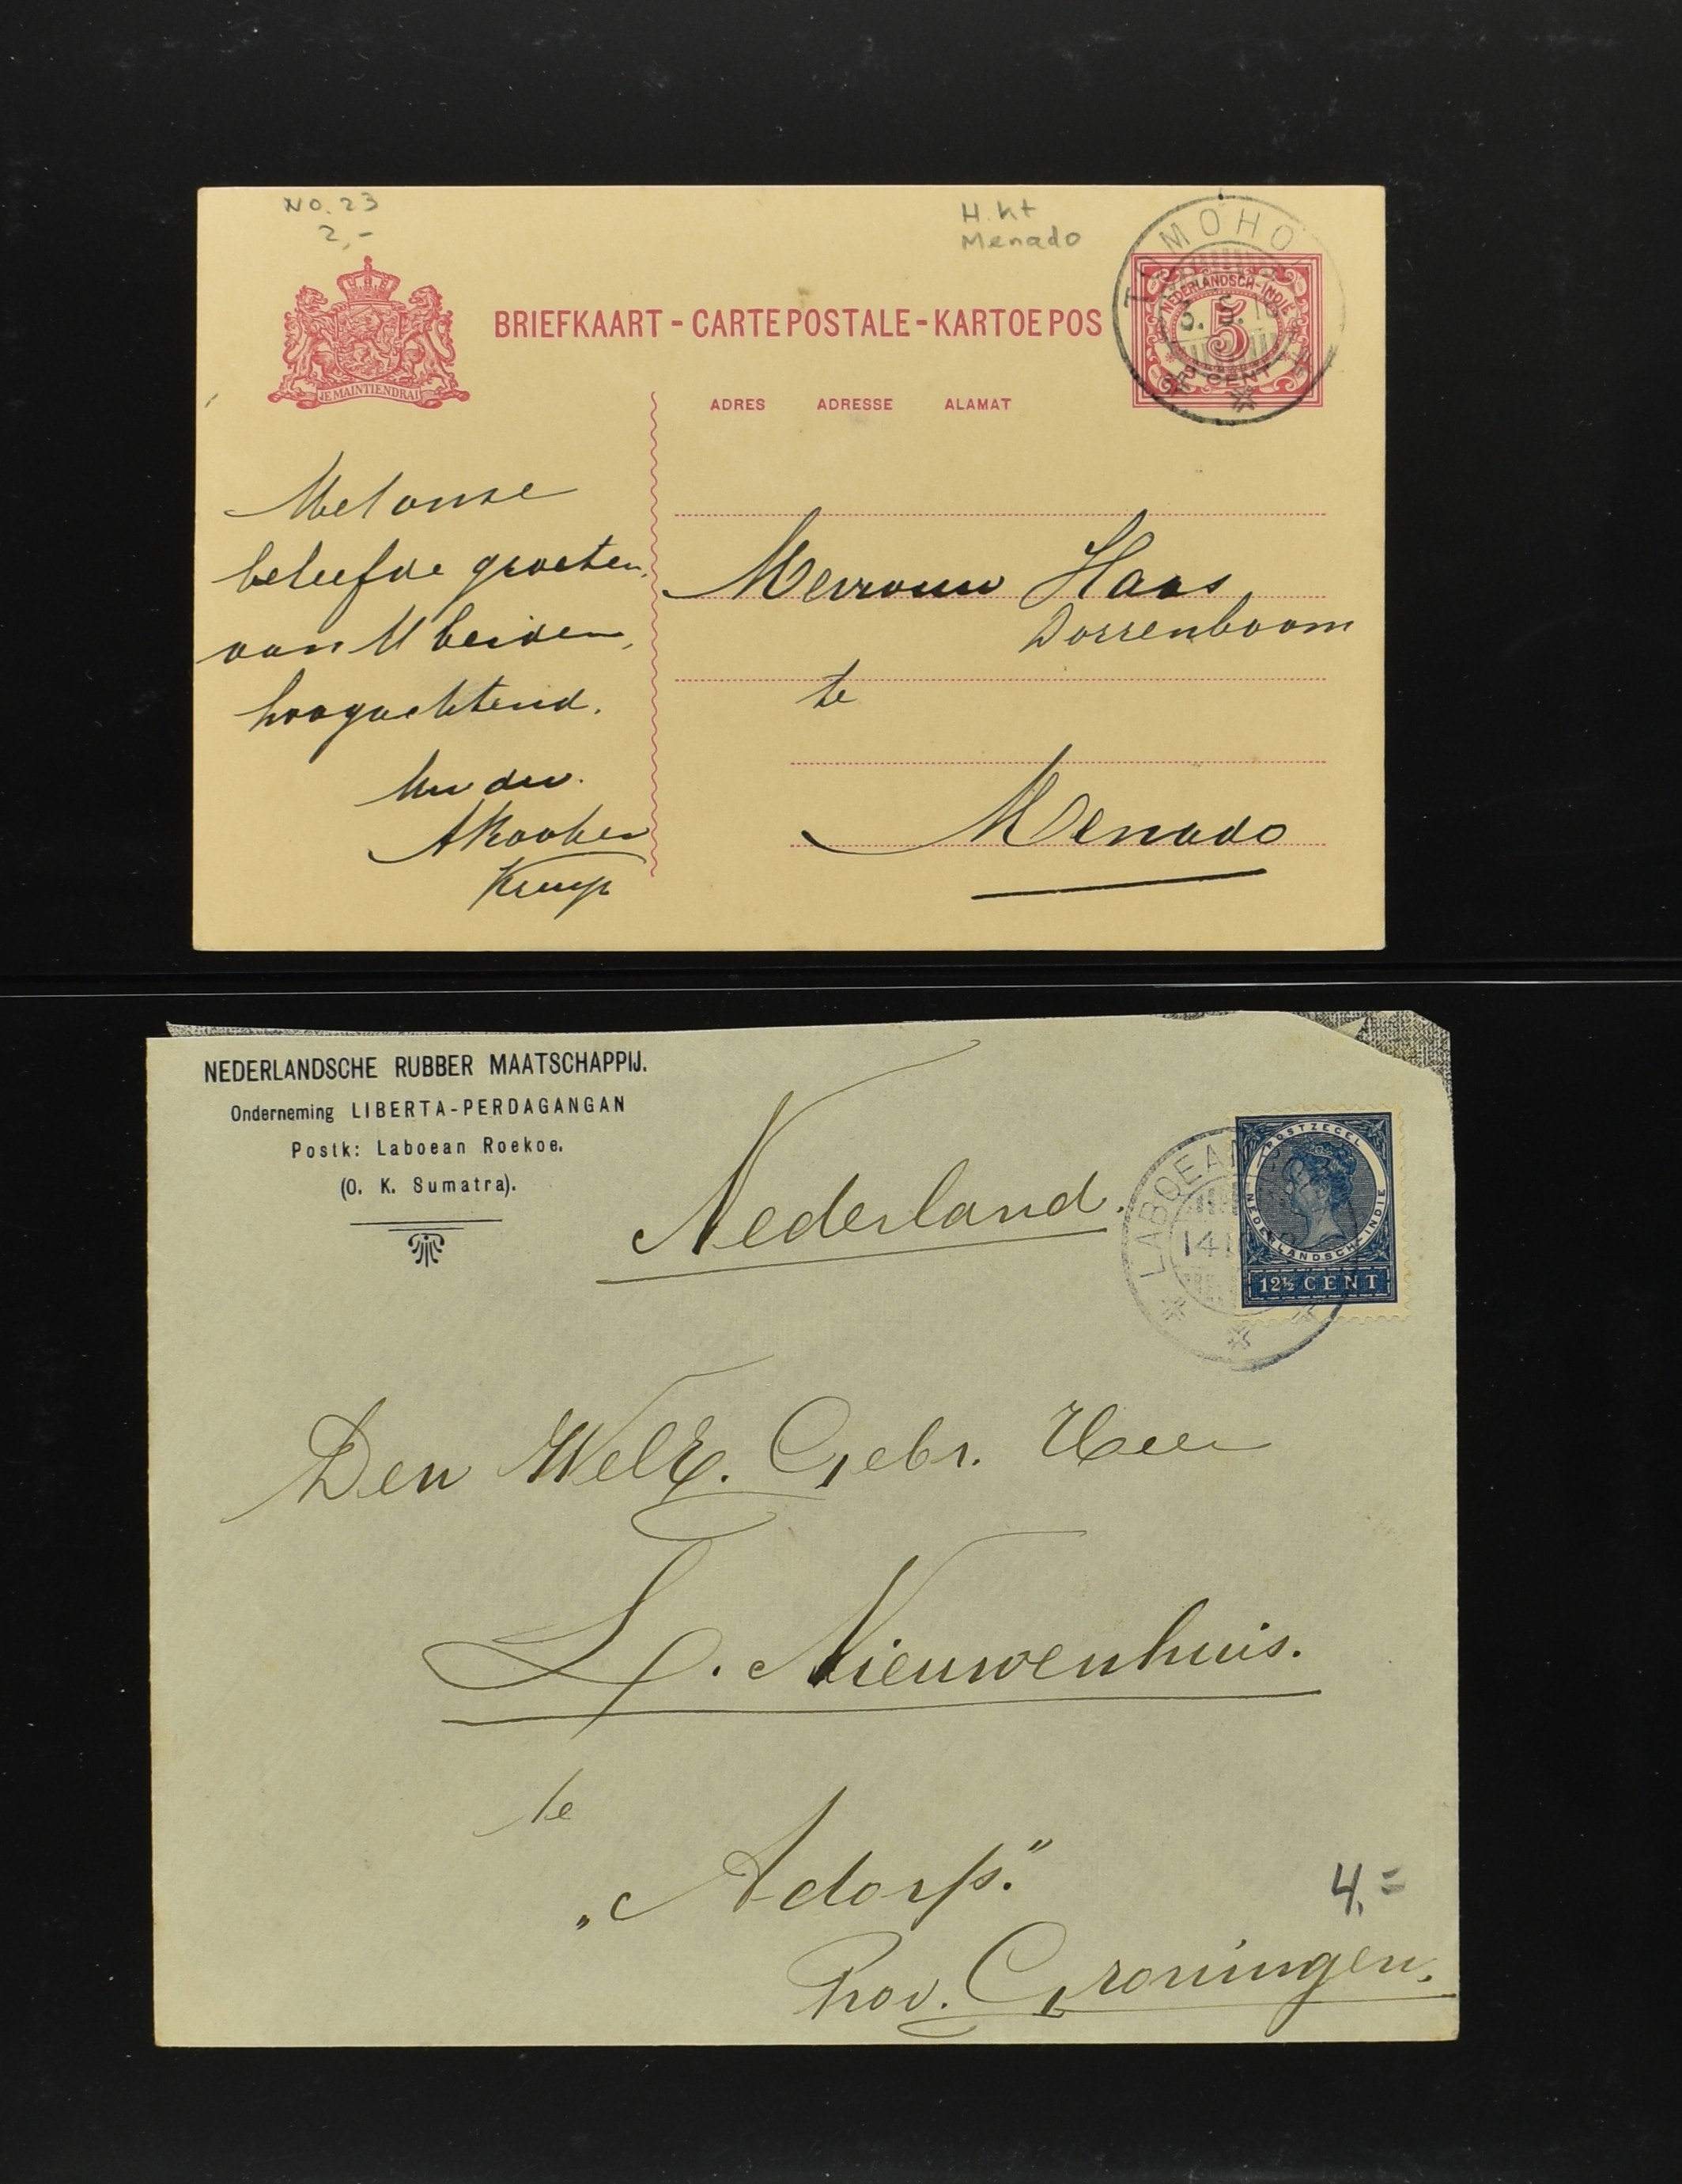 NO. 23
2,-
H.kt
Menado
TOMOHO
NEDERLANDSCH-INDIE
5
CENT
BRIEFKAART - CARTE POSTALE - KARTOE POS
JE MAINTIENDRAI
ADRES ADRESSE ALAMAT
Met onze
beleefde groeten,
aan U beiden,
hoogachtend.
Mevrouw Haas
Dorrenboom
te
Menado
NEDERLANDSCHE RUBBER MAATSCHAPPIJ.
Onderneming LIBERTA-PERDAGANGAN
Postk: Laboean Roekoe.
(O. K. Sumatra).
Nederland.
LABOEAN
14
POSTZEGEL
NEDERLANDSCH-INDIE
12½ CENT
Den WelE. Gebr. Heer
L. Nieuwenhuis.
te
„Adorp."
4,=
Prov. Groningen.